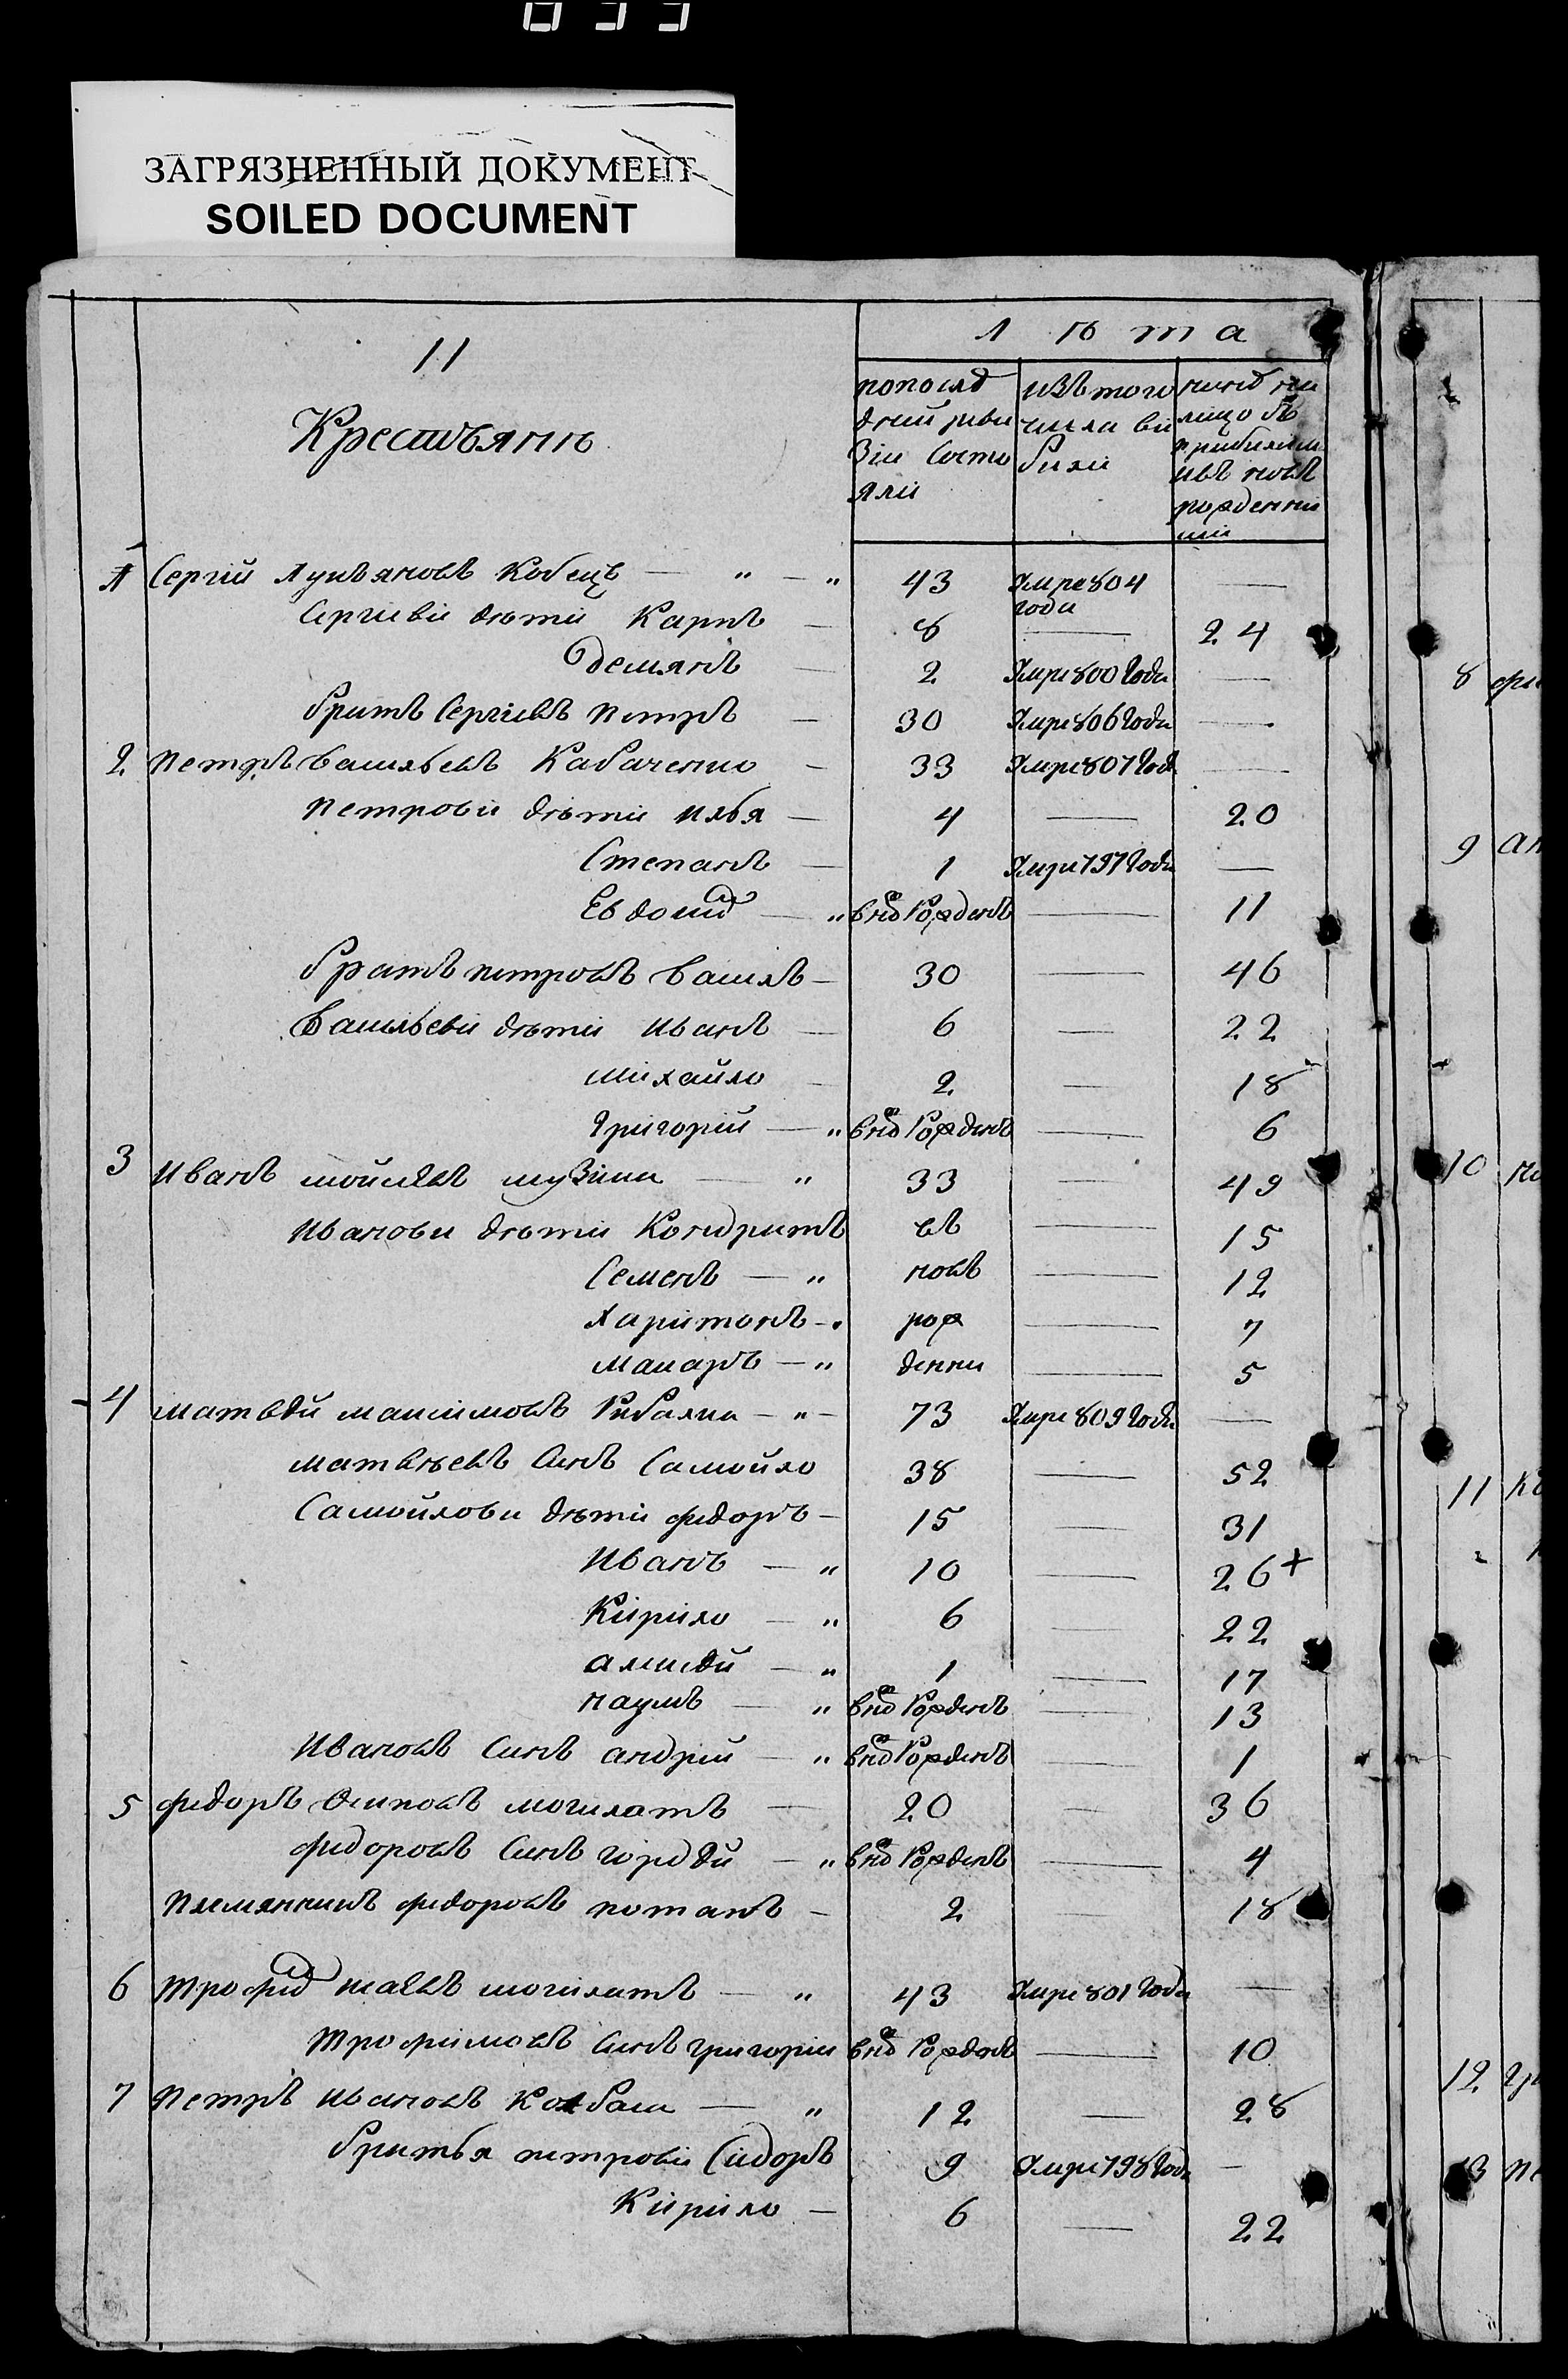 ЗАГРЯЗНЕННЫЙ ДОКУМЕНТ
SOILED DOCUMENT
11
Крестьянъ
Лѣта
по послѣдней ревизіи состояли
изъ того числа вибили
нинѣ на лицо съ новъ рожденними
1 Сергій Лукъяновъ Кобецъ — " — " 43 Умре 804 года —
Сергіеви дѣти Карпъ — 8 — 24
Демянъ — 2 Умре 800 года —
братъ Сергіевъ Петръ — 30 Умре 806 года —
2 Петръ Васильевъ Кабаченко — 33 Умре 807 год —
Петрови дѣти Илья — 4 — 20
Степанъ — 1 Умре 797 года —
Евдоким — " внов рожденъ — 11
братъ Петровъ Василь — 30 — 46
Васильеви дѣти Иванъ — 6 — 22
Михайло — 2 — 18
Григорій — " внов рожденъ — 6
3 Иванъ Мойсѣевъ — " 33 — 49
Иванови дѣти Кондратъ въ — 15
Семенъ — " новъ — 12
Харитонъ — " рож — 7
Макаръ — " денни — 5
4 Матвѣй Максимовъ Рибалка — " — 73 Умре 809 года —
Матвѣевъ синъ Самойло 38 — 52
Самойлови дѣти Федоръ — 15 — 31
Иванъ — " 10 — 26 +
Кирило — " 6 — 22
Алексѣй — " 1 — 17
Наумъ — " внов рожденъ — 13
Ивановъ синъ Андрей — " внов рожденъ — 1
5 Федоръ Осиповъ Могилатъ — 20 — 36
Федоровъ синъ Гордѣй — " внов рожденъ — 4
Племянникъ Федоровъ Потапъ — 2 — 18
6 Трофим Могилатъ — " 43 Умре 801 года —
Трофимовъ синъ Григорій внов рожденъ — 10
7 Петръ Ивановъ Колбаса — " 12 — 28
братья Петрови Сидоръ 9 Умре 798 года —
Кирило — 6 — 22
8
9
10
11
12
13